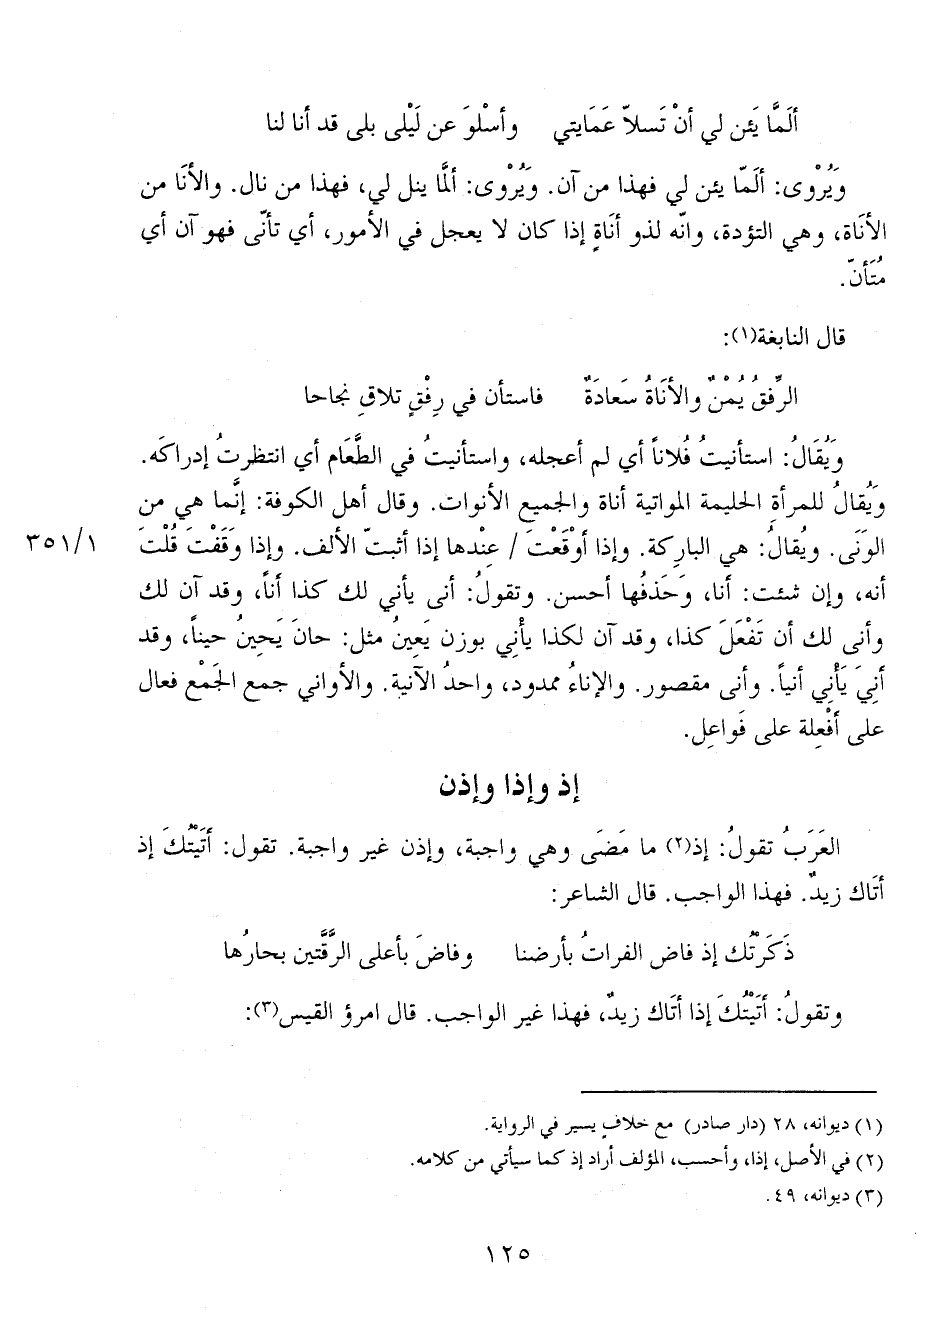 ألَمَّا يَئن لي أنْ تَسلاّ عَمَايتي وأسْلوَ عن لَيْلى بلى قد أنا لنا
ويُرْوى: ألَمّا يئن لي فهذا من آن. ويُرْوى: ألمَّا ينل لي، فهذا من نال. والأنَا من
الأنَاة، وهي التؤدة، وانّه لذو أنَاةٍ إذا كان لا يعجل في الأمور، أي تأنّى فهو آن أي
مُتَأنّ.
قال النابغة(١):
الرِّفقُ يُمْنٌ والأنَاةُ سَعادَةٌ فاستأن في رِفْقٍ تلاقِ نجاحا
ويُقَالُ: استأنيتُ فُلاناً أي لم أعجله، واستأنيتُ في الطَّعَام أي انتظرتُ إدراكَه.
ويُقالُ للمرأة الحليمة المواتية أناة والجميع الأنوات. وقال أهل الكوفة: إنَّما هي من
الوَنَى. ويُقالُ: هي الباركة. وإذا أوْقَعْتَ / عِنْدها إذا أثبتّ الألف. وإذا وقَفْتَ قُلْتَ ٣٥١/١
أنه، وإن شئت: أنا، وحَذفُها أحسن. وتقولُ: أنى يأني لك كذا أناً، وقد آن لك
وأنى لك أن تَفْعَلَ كذا، وقد آن لكذا يأْنِي بوزن يَعِينُ مثل: حانَ يَحينُ حيناً، وقد
أنِيَ يَأْنِي أنياً. وأنى مقصور. والإناءُ ممدود، واحدُ الآنية. والأواني جمع الجَمْع فعال
على أفْعِلة على فَواعِل.
إذ وإذا وإذن
العَرَبُ تقولُ: إذ(٢) ما مَضَى وهي واجبة، وإذن غير واجبة. تقول: أتَيْتُكَ إذ
أتَاك زيدٌ. فهذا الواجب. قال الشاعر:
ذَكَرْتُك إذ فاض الفراتُ بأرضنا وفاضَ بأعلى الرَّقَّتين بحارُها
وتقولُ: أتَيْتُكَ إذا أتَاك زيدٌ، فهذا غير الواجب. قال امرؤ القيس(٣):
(١) ديوانه، ٢٨ (دار صادر) مع خلافٍ يسير في الرواية.
(٢) في الأصل، إذا، وأحسب، المؤلف أراد إذ كما سيأتي من كلامه.
(٣) ديوانه، ٤٩.
١٢٥